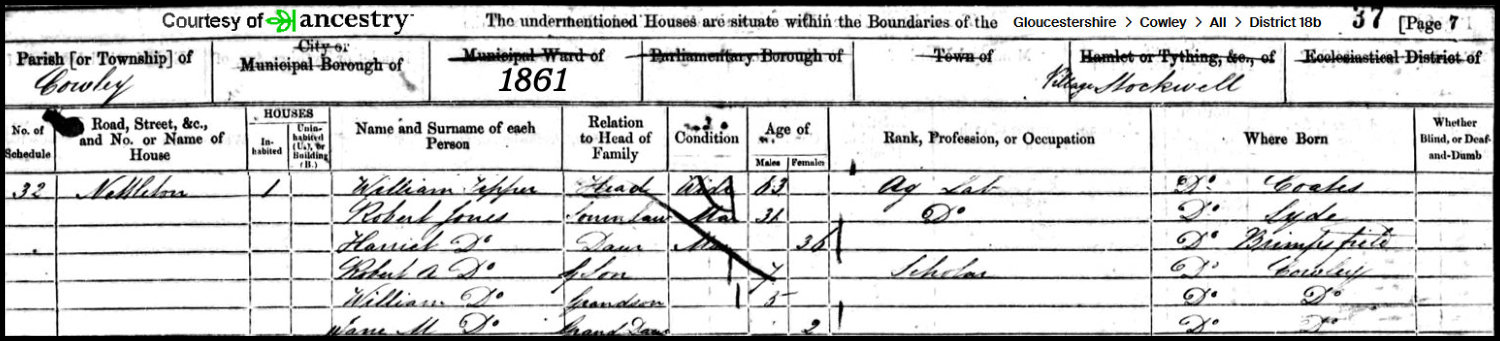 Courtesy of ancestry The undermentioned Houses are situate within the Boundaries of the Gloucestershire > Cowley > All > District 18b 37 [Page 7
Parish [or Township] of City or Municipal Borough of Municipal Ward of Parliamentary Borough of Town of Hamlet or Tything, &c., of Ecclesiastical District of
Cowley 1861 Village Stockwell
No. of Schedule Road, Street, &c., and No. or Name of House HOUSES Inhabited Uninhabited (U.), or Building (B.) Name and Surname of each Person Relation to Head of Family Condition Age of Males Females Rank, Profession, or Occupation Where Born Whether Blind, or Deaf-and-Dumb
32 Nettleton 1 William Tipper Head Wide 63 Ag Lab Do Coates
Robert Jones Son in law Mar Do Do Syde
Harriet Do Daur Mar 36 Do Brimpsfield
Robert A Do G Son 7 Scholar Do Cowley
William Do Grandson 5 Do Do
Jane M Do Grand Daur 2 Do Do